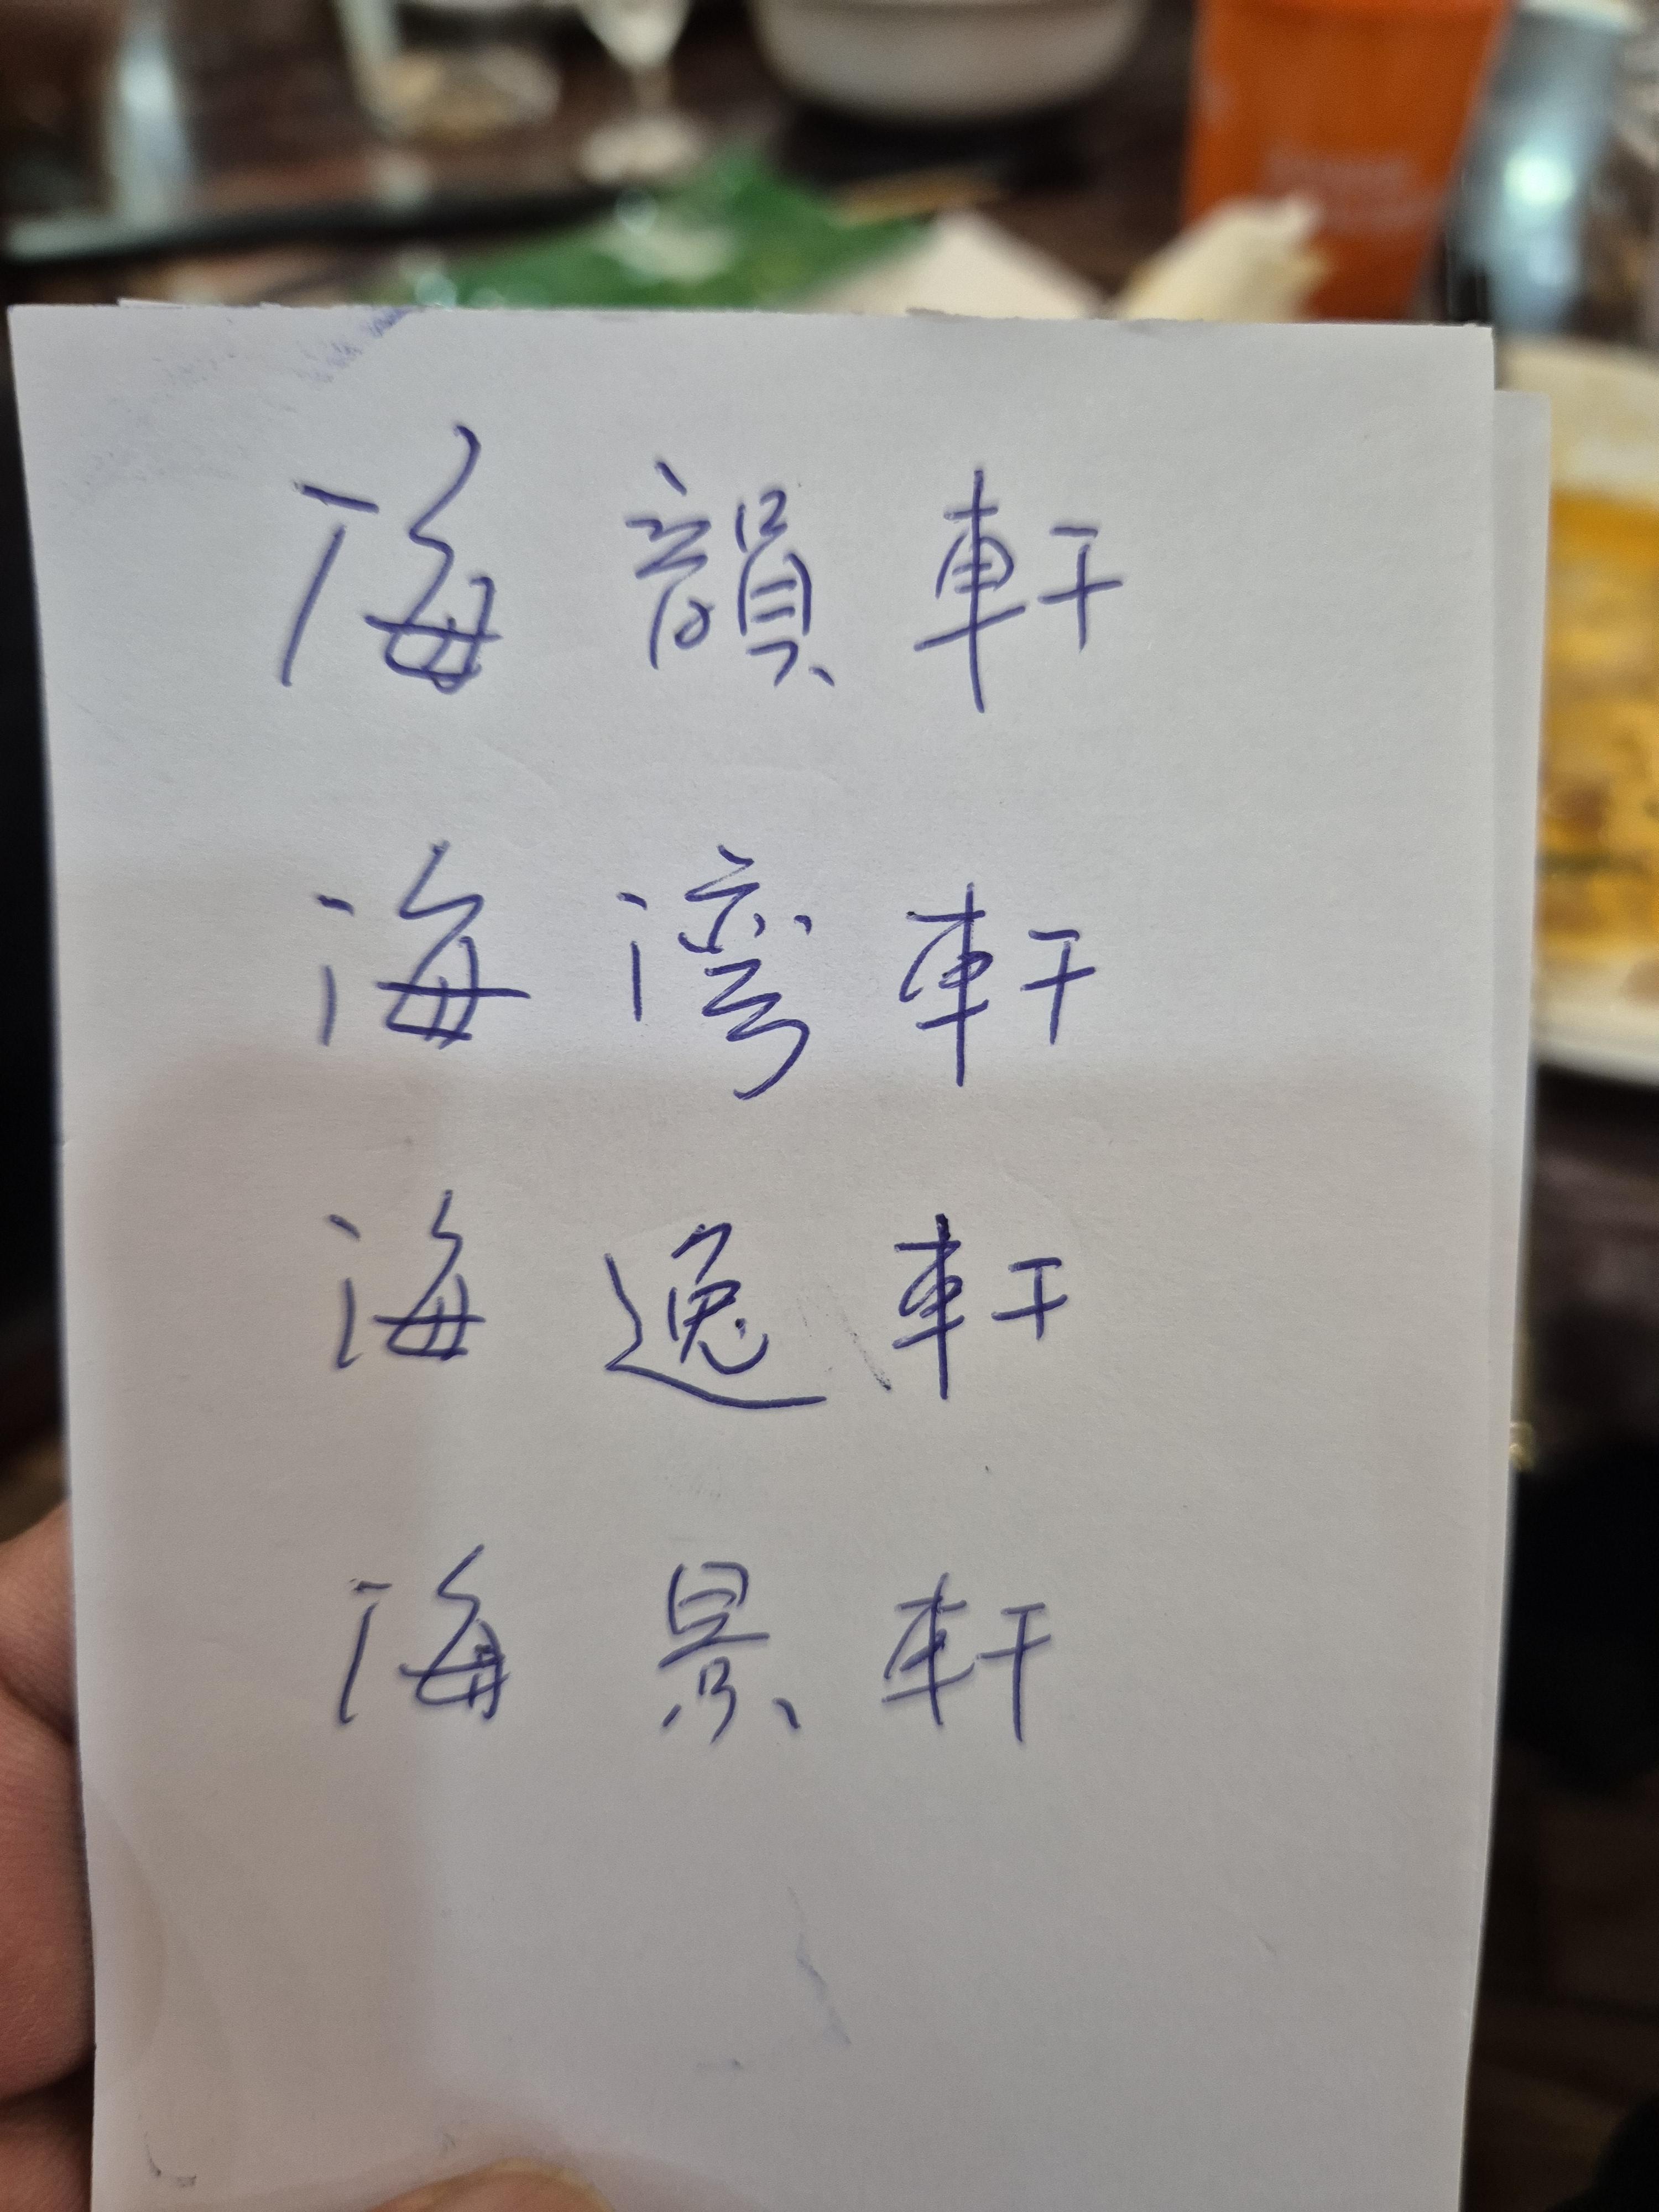 海韻軒
海湾軒
海逸軒
海景軒